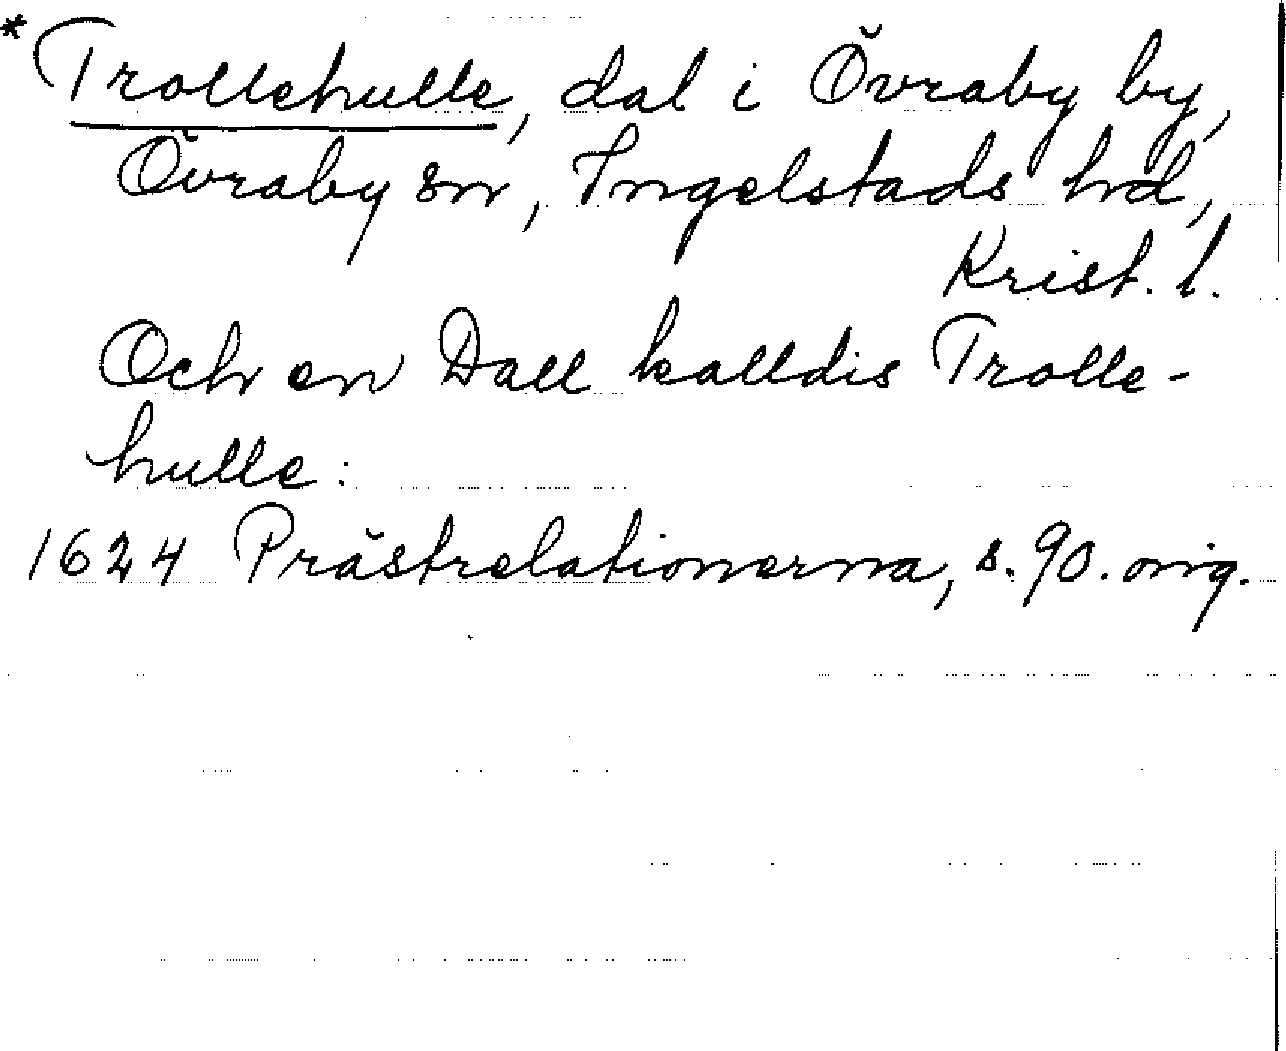 *Trollehulle, dal i Övraby by,
Övraby sn, Ingelstads hd,
Krist. l.
Och en Dall kalldis Trolle-
hulle:
1624 Prästrelationerna, s. 90. orig.